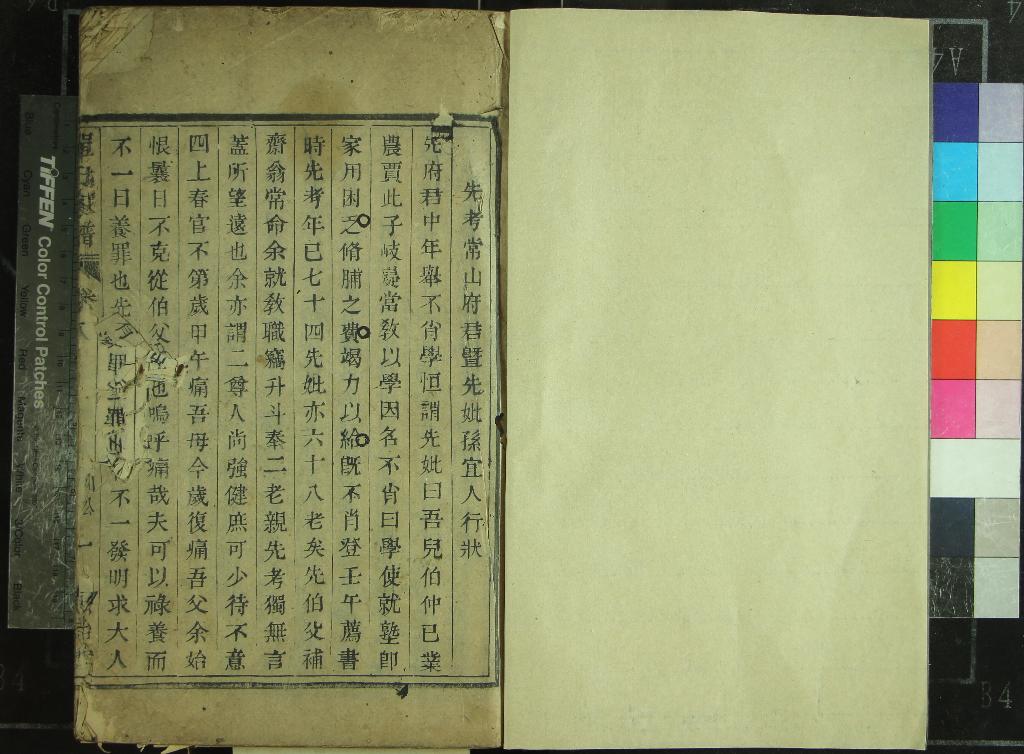 先考常山府君暨先妣孫宜人行狀
先府君中年舉不肖學恒謂先妣曰吾兒伯仲已業
農賈此子岐嶷當教以學因名不肖曰學使就塾卽
家用困乏脩脯之費竭力以給旣不肖登壬午薦書
時先考年已七十四先妣亦六十八老矣先伯父補
齋翁常命余就敎職竊升斗奉二老親先考獨無言
蓋所望遠也余亦謂二尊人尚強健庶可少待不意
四上春官不第歲甲午痛吾母今歲復痛吾父余始
恨曩日不克從伯父 也嗚呼痛哉夫可以祿養而
不一日養罪也先 不一發明求大人
譜
一
TIFFEN Color Control Patches
Blue
Cyan
Green
Yellow
Red
Magenta
White
3/Color
Black
A4
B4